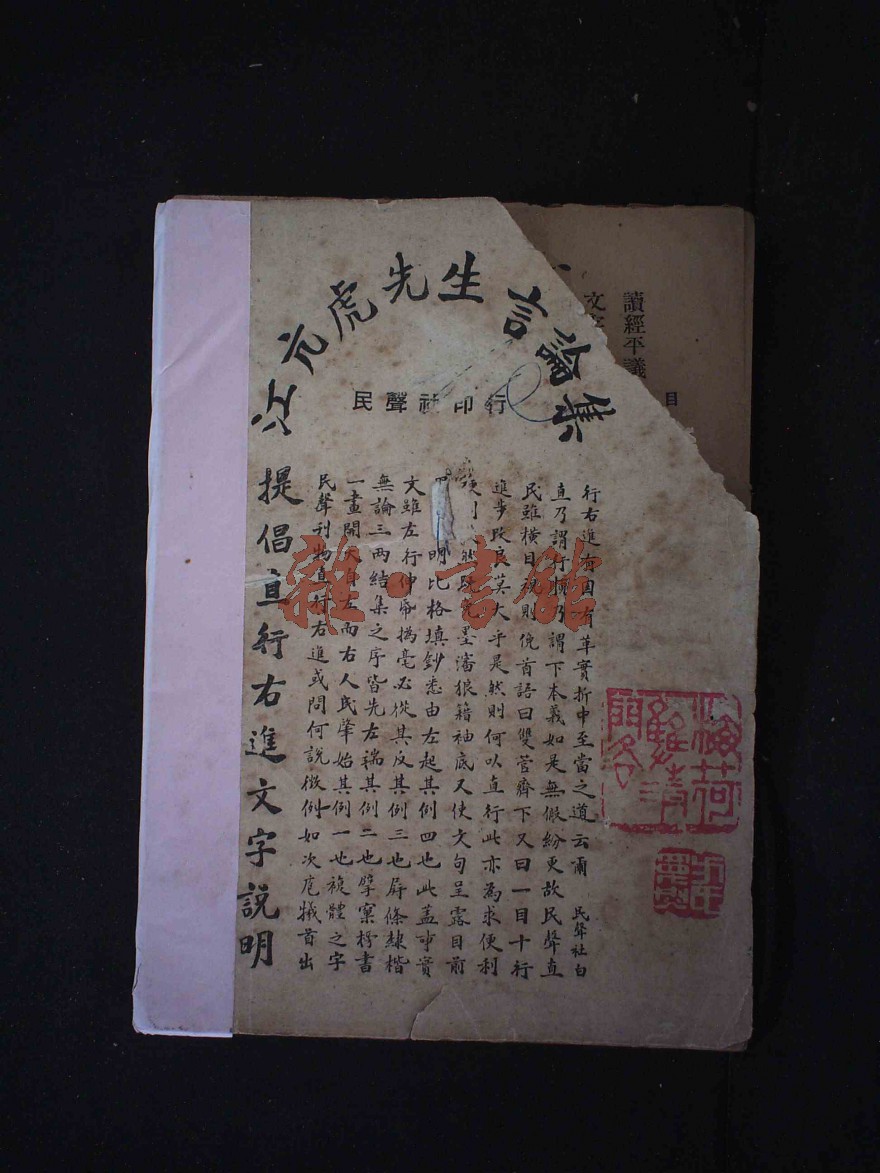 江亢虎先生言論集
民聲社印行
提倡直行右進文字說明
民聲刊物直行右進或問何說徵例如次庖犧首出
一畫開天自左而右人民肇始其例一也複體之字
無論三兩結集之序皆先左端其例二也擘窠榜書
文雖左行伸帋搦毫必從其反其例三也屏條隸楷
明比格填鈔悉由左起其例四也此蓋事實
則然既免墨瀋狼籍袖底又使文句呈露目前
進步改良莫大乎是然則何以直行此亦為求便利
民雖橫目視則俛首語曰雙管齊下又曰一目十行
直乃謂行橫乃謂下本義如是無假紛更故民聲直
行右進有因有革實折中至當之道云爾 民聲社白
目
讀經平議
文
雜·書館